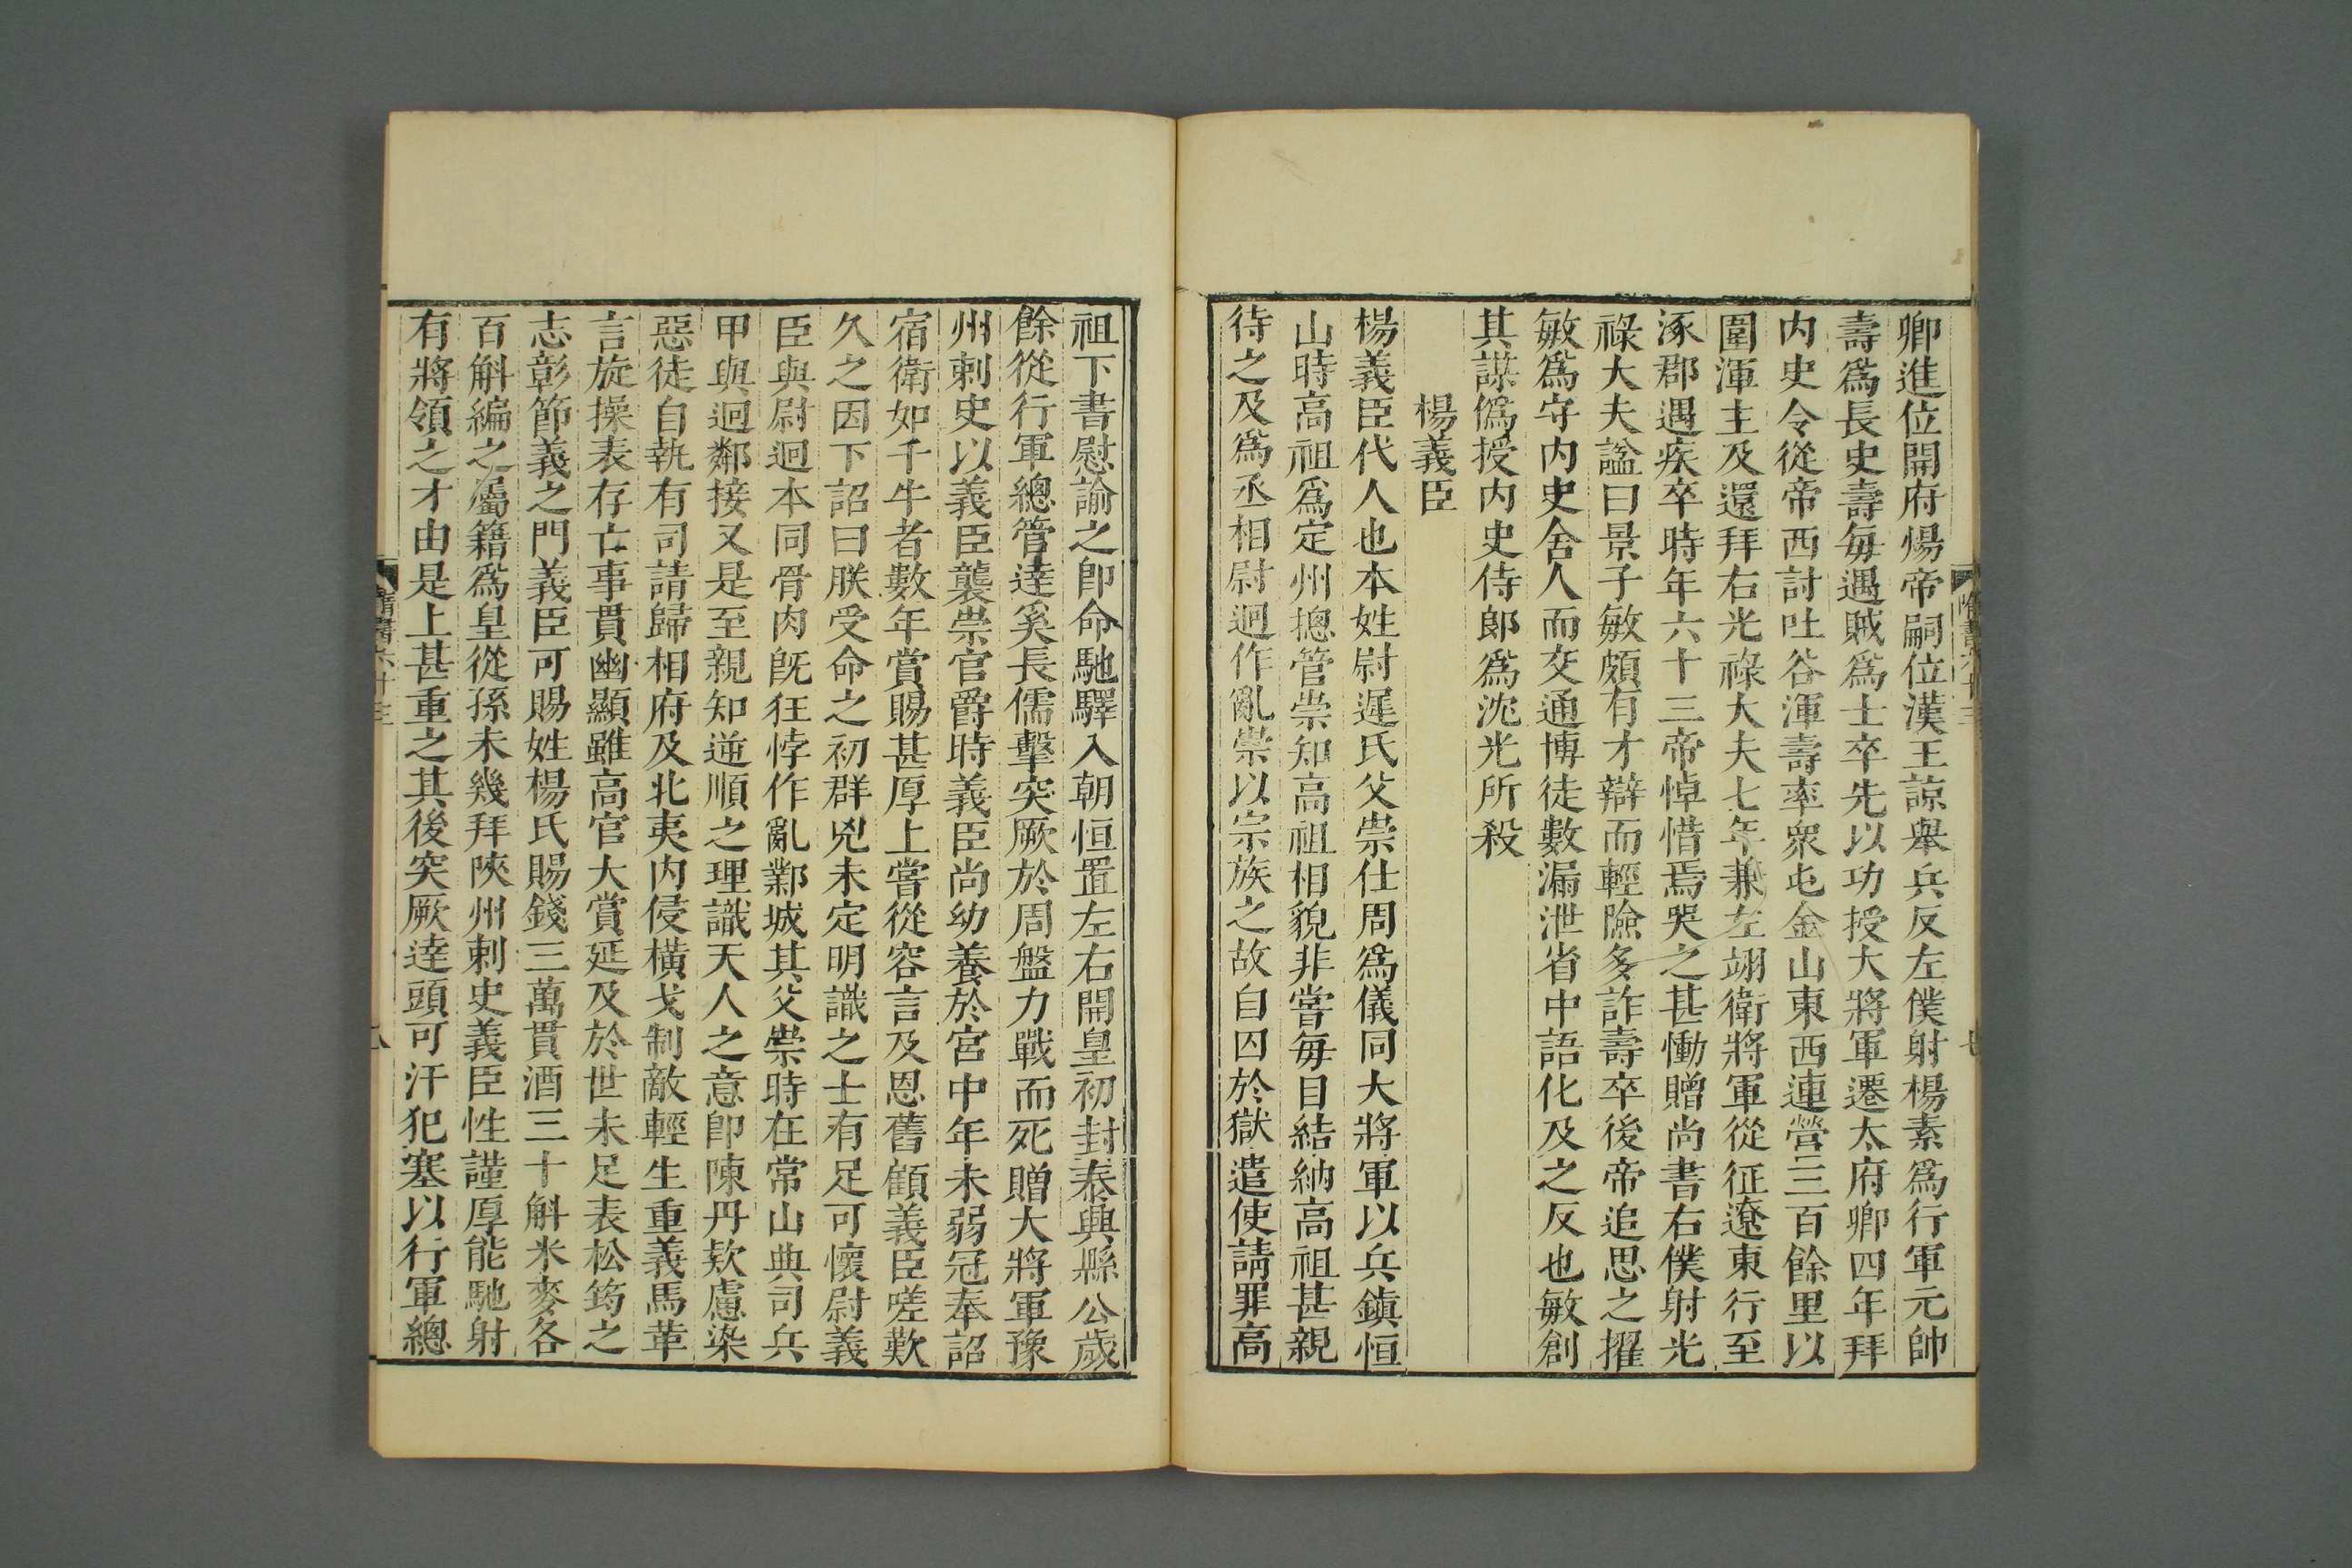 卿進位開府煬帝嗣位漢王諒舉兵反左僕射楊素爲行軍元帥
壽爲長史壽每遇賊爲士卒先以功授大將軍遷太府卿四年拜
内史令從帝西討吐谷渾壽率衆屯金山東西連營三百餘里以
圍渾主及還拜右光祿大夫七年兼左翊衛將軍從征遼東行至
涿郡遇疾卒時年六十三帝悼惜焉哭之甚慟贈尚書右僕射光
祿大夫諡曰景子敏頗有才辯而輕險多詐壽卒後帝追思之擢
敏爲守内史舍人而交通博徒數漏泄省中語化及之反也敏創
其謀僞授内史侍郎爲沈光所殺
楊義臣
楊義臣代人也本姓尉遲氏父崇仕周爲儀同大將軍以兵鎮恒
山時高祖爲定州摠管崇知高祖相貌非嘗每自結納高祖甚親
待之及爲丞相尉迥作亂崇以宗族之故自囚於獄遣使請罪高
祖下書慰諭之卽命馳驛入朝恒置左右開皇初封秦興縣公歲
餘從行軍總管達奚長儒擊突厥於周盤力戰而死贈大將軍豫
州刺史以義臣襲崇官爵時義臣尚幼養於宮中年未弱冠奉詔
宿衛如千牛者數年賞賜甚厚上嘗從容言及恩舊顧義臣嗟歎
久之因下詔曰朕受命之初群兇未定明識之士有足可懷尉義
臣與尉迥本同骨肉旣狂悖作亂鄴城其父崇時在常山典司兵
甲與迥鄰接又是至親知逆順之理識天人之意卽陳丹欵慮染
惡徒自執有司請歸相府及北夷内侵橫戈制敵輕生重義馬革
言旋操表存亡事貫幽顯雖高官大賞延及於世未足表松筠之
志彰節義之門義臣可賜姓楊氏賜錢三萬貫酒三十斛米麥各
百斛編之屬籍爲皇從孫未幾拜陝州刺史義臣性謹厚能馳射
有將領之才由是上甚重之其後突厥達頭可汗犯塞以行軍總
隋書六十三